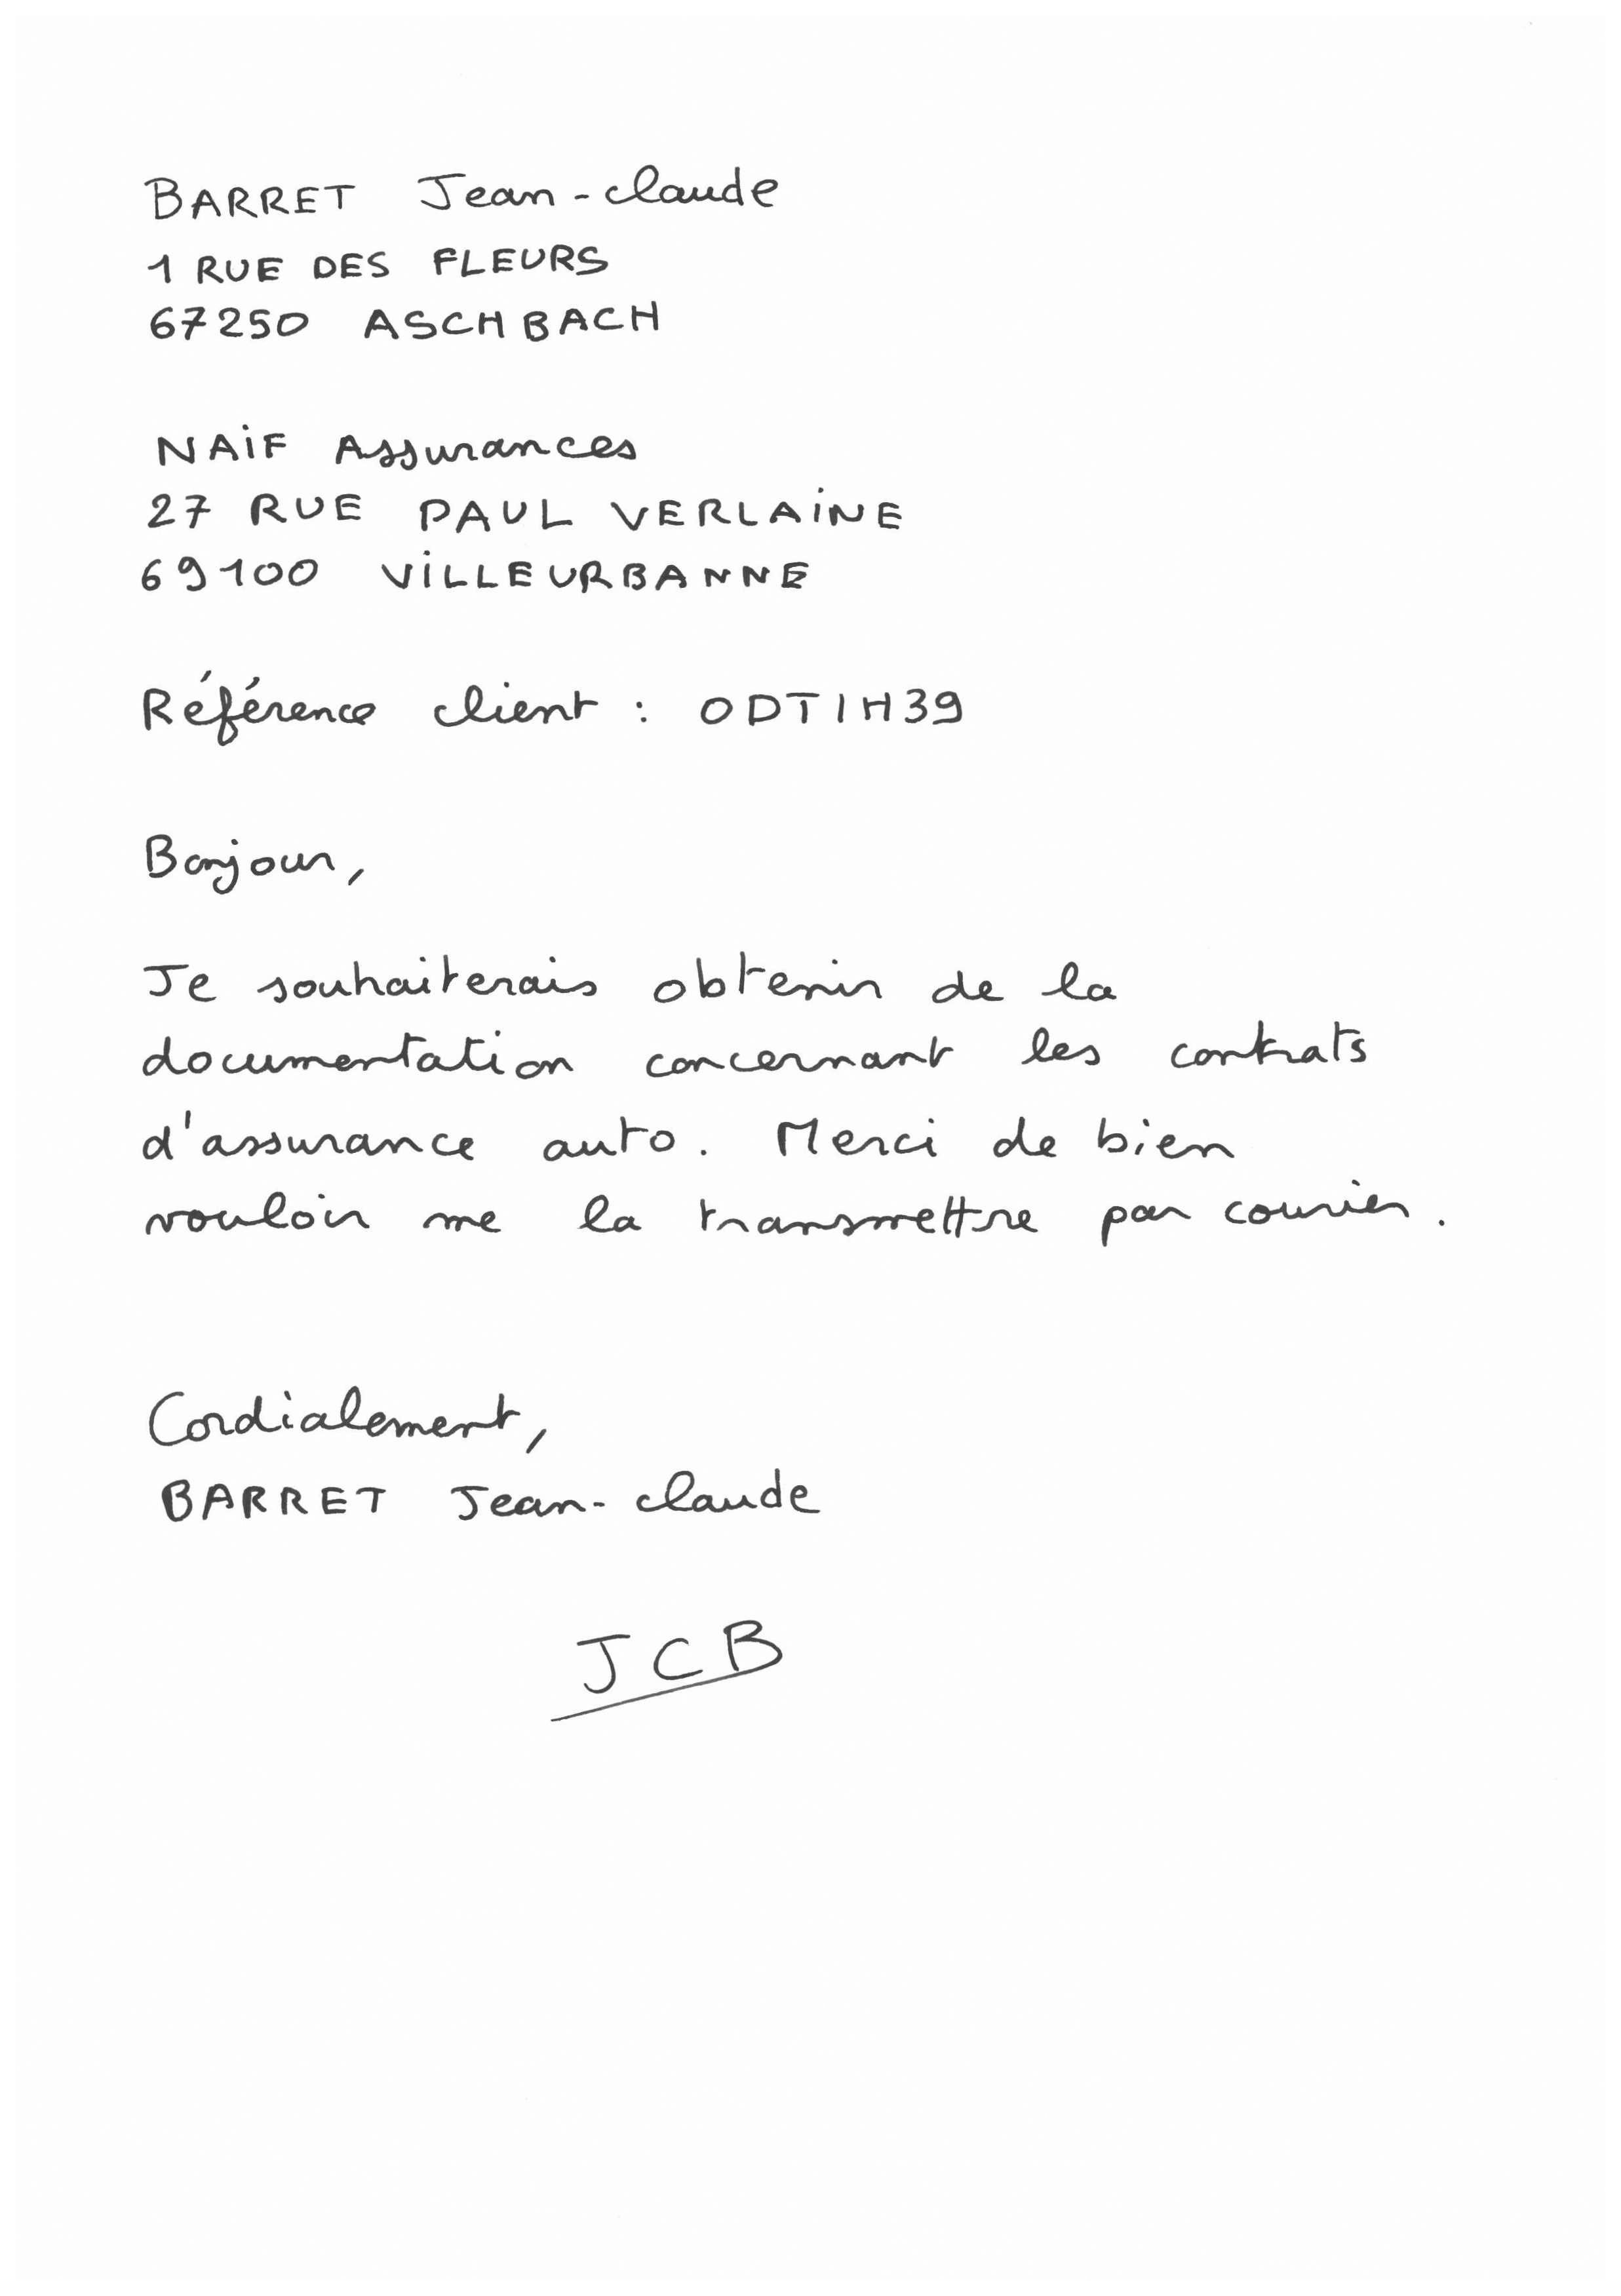 BARRET Jean-claude
1 RUE DES FLEURS
67250 ASCHBACH
NAiF Assurances
27 RUE PAUL VERLAiNE
69100 ViLLEURBANNE
Référence client : ODTIH39
Bonjour,
Je souhaiterais obtenir de la
documentation concernant les contrats
d'assurance auto. Merci de bien
vouloir me la transmettre par courrier.
Cordialement,
BARRET Jean-claude
JCB